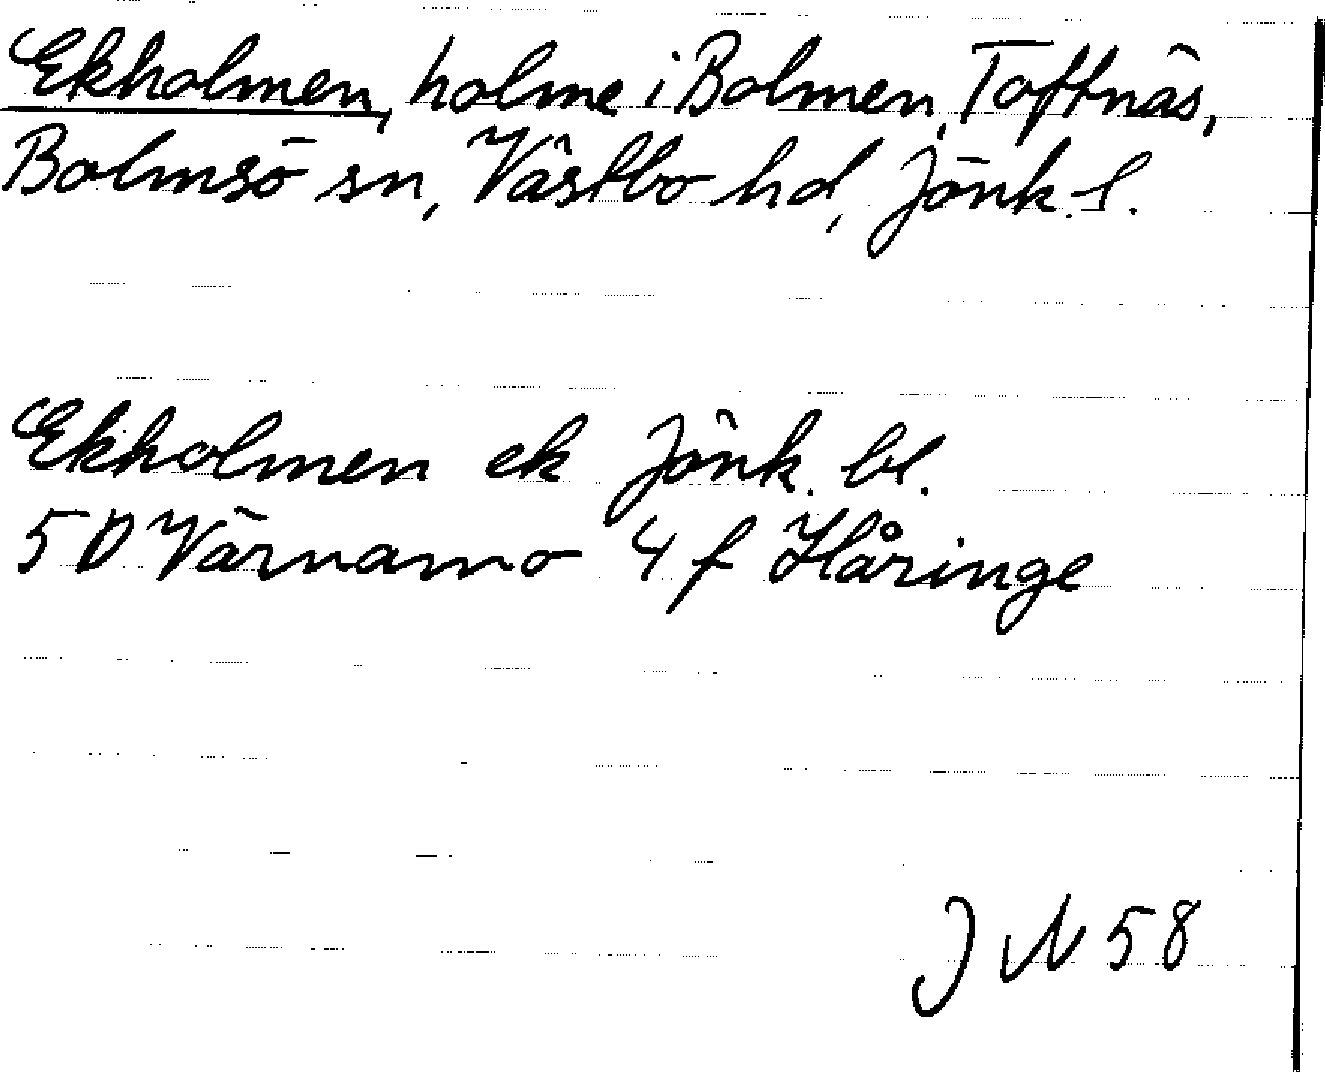 Ekholmen, holme i Bolmen, Toftnäs,
Bolmsö sn, Västbo hd, Jönk. l.
Ekholmen ek Jönk. bl.
5 D Värnamo 4 f Håringe
J N 58